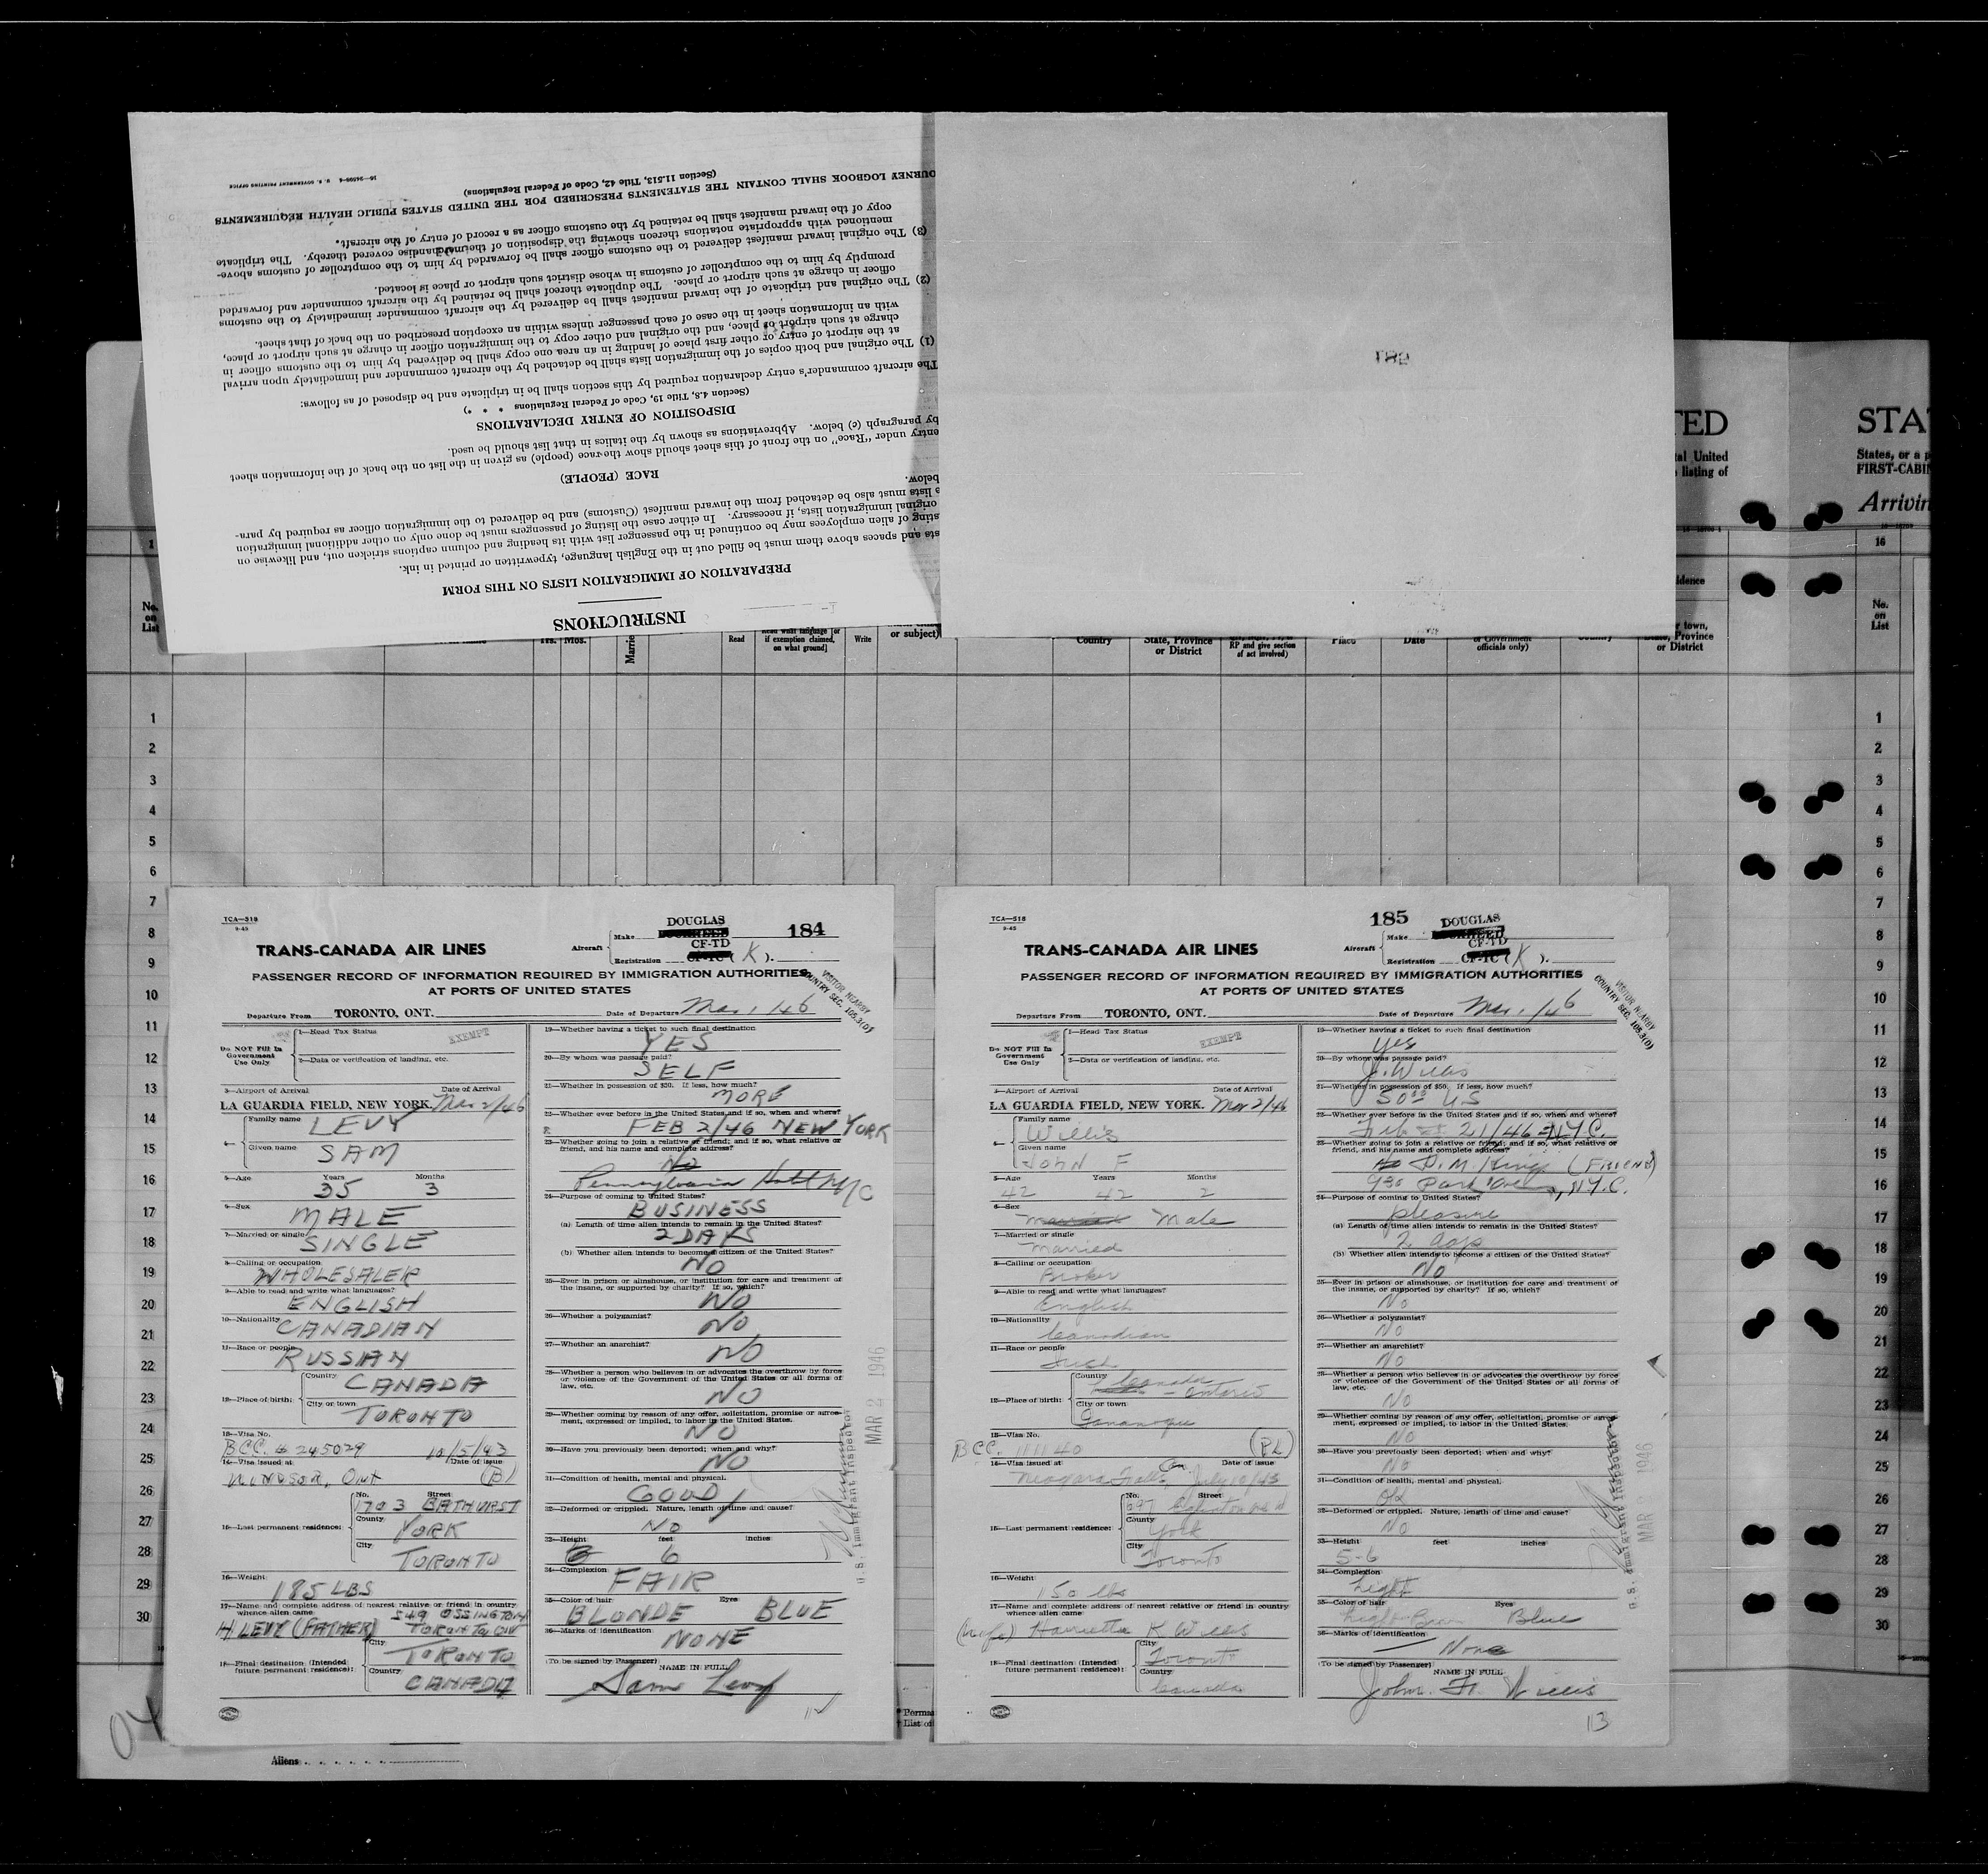 INSTRUCTIONS
PREPARATION OF IMMIGRATION LISTS ON THIS FORM
sts and spaces above them must be filled out in the English language, typewritten or printed in ink.
sting of alien employees may be continued in the passenger list with its heading and column captions stricken out, and likewise on
original immigration lists, if necessary. In either case the listing of passengers must be done only on other additional immigration
e lists must also be detached from the inward manifest (Customs) and be delivered to the immigration officer as required by para-
below.
RACE (PEOPLE)
entry under "Race" on the front of this sheet should show the race (people) as given in the list on the back of the information sheet
by paragraph (c) below. Abbreviations as shown by the italics in that list should be used.
DISPOSITION OF ENTRY DECLARATIONS
(Section 4.8, Title 19, Code of Federal Regulations * * *)
The aircraft commander's entry declaration required by this section shall be in triplicate and be disposed of as follows:
(1) The original and both copies of the immigration lists shall be detached by the aircraft commander and immediately upon arrival
at the airport of entry or other first place of landing in an area one copy shall be delivered by him to the customs officer in
charge at such airport or place, and the original and other copy to the immigration officer in charge at such airport or place,
with an information sheet in the case of each passenger unless within an exception prescribed on the back of that sheet.
(2) The original and triplicate of the inward manifest shall be delivered by the aircraft commander immediately to the customs
officer in charge at such airport or place. The duplicate thereof shall be retained by the aircraft commander and forwarded
promptly by him to the comptroller of customs in whose district such airport or place is located.
(3) The original inward manifest delivered to the customs officer shall be forwarded by him to the comptroller of customs above-
mentioned with appropriate notations thereon showing the disposition of the merchandise covered thereby. The triplicate
copy of the inward manifest shall be retained by the customs officer as a record of entry of the aircraft.
OURNEY LOGBOOK SHALL CONTAIN THE STATEMENTS PRESCRIBED FOR THE UNITED STATES PUBLIC HEALTH REQUIREMENTS
(Section 11.513, Title 42, Code of Federal Regulations)
U. S. GOVERNMENT PRINTING OFFICE
TED STA
tal United States, or a p
listing of FIRST-CABIN
Arrivin
1 16
No. on List
Yrs. Mos. Marrie Read Read what language [or if exemption claimed, on what ground] Write or subject)
Country State, Province or District RP and give section of act involved) Place Date or Government officials only) Country
idence
r town, State, Province or District
No. on List
1
2
3
4
5
6
7
8
9
10
11
12
13
14
15
16
17
18
19
20
21
22
23
24
25
26
27
28
29
30
TCA—518
9-45
TRANS-CANADA AIR LINES
Aircraft
Make DOUGLAS
Registration CF-TD (K).
184
PASSENGER RECORD OF INFORMATION REQUIRED BY IMMIGRATION AUTHORITIES
AT PORTS OF UNITED STATES
VISITOR NEARBY
COUNTRY SEC. 105.3(D)
Departure From TORONTO, ONT. Date of Departure Mar 1/46
Do NOT Fill In Government Use Only
1—Head Tax Status EXEMPT
2—Data or verification of landing, etc.
3—Airport of Arrival Date of Arrival
LA GUARDIA FIELD, NEW YORK. Mar 2/46
4— Family name LEVY
Given name SAM
5—Age Years 35 Months 3
6—Sex MALE
7—Married or single SINGLE
8—Calling or occupation WHOLESALER
9—Able to read and write what languages? ENGLISH
10—Nationality CANADIAN
11—Race or people RUSSIAN
12—Place of birth: Country CANADA
City or town TORONTO
13—Visa No. BCC. # 245029 10/5/43
14—Visa issued at Date of issue
WINDSOR, Ont (B)
15—Last permanent residence: No. Street 1703 BATHURST
County YORK
City TORONTO
16—Weight 185 LBS
17—Name and complete address of nearest relative or friend in country whence alien came
H LEVY (FATHER) 549 OSSINGTON TORONTO
18—Final destination (Intended future permanent residence): City TORONTO
Country CANADA
19—Whether having a ticket to such final destination YES
20—By whom was passage paid? SELF
21—Whether in possession of $50. If less, how much? MORE
22—Whether ever before in the United States and if so, when and where?
FEB 2/46 NEW YORK
23—Whether going to join a relative or friend; and if so, what relative or friend, and his name and complete address?
No
Pennsylvania Hotel NYC
24—Purpose of coming to United States? BUSINESS
(a) Length of time alien intends to remain in the United States? 2 DAYS
(b) Whether alien intends to become a citizen of the United States? NO
25—Ever in prison or almshouse, or institution for care and treatment of the insane, or supported by charity? If so, which? NO
26—Whether a polygamist? NO
27—Whether an anarchist? NO
28—Whether a person who believes in or advocates the overthrow by force or violence of the Government of the United States or all forms of law, etc. NO
29—Whether coming by reason of any offer, solicitation, promise or agreement, expressed or implied, to labor in the United States. NO
30—Have you previously been deported; when and why? NO
31—Condition of health, mental and physical. GOOD
32—Deformed or crippled. Nature, length of time and cause? NO
33—Height feet 6 inches
34—Complexion FAIR
35—Color of hair BLONDE Eyes BLUE
36—Marks of identification NONE
(To be signed by Passenger) NAME IN FULL
Sam Levy
U.S. Immigrant Inspector
MAR 2 1946
TCA—518
9-45
185
TRANS-CANADA AIR LINES
Aircraft
Make DOUGLAS
Registration CF-TD (K).
PASSENGER RECORD OF INFORMATION REQUIRED BY IMMIGRATION AUTHORITIES
AT PORTS OF UNITED STATES
VISITOR NEARBY
COUNTRY SEC. 105.3(D)
Departure From TORONTO, ONT. Date of Departure Mar 1/46
Do NOT Fill In Government Use Only
1—Head Tax Status EXEMPT
2—Data or verification of landing, etc.
3—Airport of Arrival Date of Arrival
LA GUARDIA FIELD, NEW YORK. Mar 2/46
4— Family name Willis
Given name JOHN F
5—Age 42 Years 42 Months 2
6—Sex Male
7—Married or single Married
8—Calling or occupation Broker
9—Able to read and write what languages? English
10—Nationality Canadian
11—Race or people Irish
12—Place of birth: Country Canada - Ontario
City or town Gananoque
13—Visa No. BCC. 111140 (BL)
14—Visa issued at Date of issue
Niagara Falls, On July 10/43
15—Last permanent residence: No. Street 697 Eglinton
County York
City Toronto
16—Weight 150 lbs
17—Name and complete address of nearest relative or friend in country whence alien came
(wife) Harrietta K Willis
18—Final destination (Intended future permanent residence): City Toronto
Country Canada
19—Whether having a ticket to such final destination yes
20—By whom was passage paid? J. Willis
21—Whether in possession of $50. If less, how much? 50.00 US
22—Whether ever before in the United States and if so, when and where?
Feb 21/46 N.Y.C.
23—Whether going to join a relative or friend; and if so, what relative or friend, and his name and complete address?
D. M. King (FRIEND)
930 Park Ave, N.Y.C.
24—Purpose of coming to United States? pleasure
(a) Length of time alien intends to remain in the United States? 2 days
(b) Whether alien intends to become a citizen of the United States? No
25—Ever in prison or almshouse, or institution for care and treatment of the insane, or supported by charity? If so, which? No
26—Whether a polygamist? No
27—Whether an anarchist? No
28—Whether a person who believes in or advocates the overthrow by force or violence of the Government of the United States or all forms of law, etc. No
29—Whether coming by reason of any offer, solicitation, promise or agreement, expressed or implied, to labor in the United States. No
30—Have you previously been deported; when and why? No
31—Condition of health, mental and physical. OK
32—Deformed or crippled. Nature, length of time and cause? No
33—Height 5-6 feet inches
34—Complexion Light
35—Color of hair Light Brown Eyes Blue
36—Marks of identification None
(To be signed by Passenger) NAME IN FULL
John F. Willis
U.S. Immigrant Inspector
MAR 2 1946
13
Aliens
* Perma
† List of